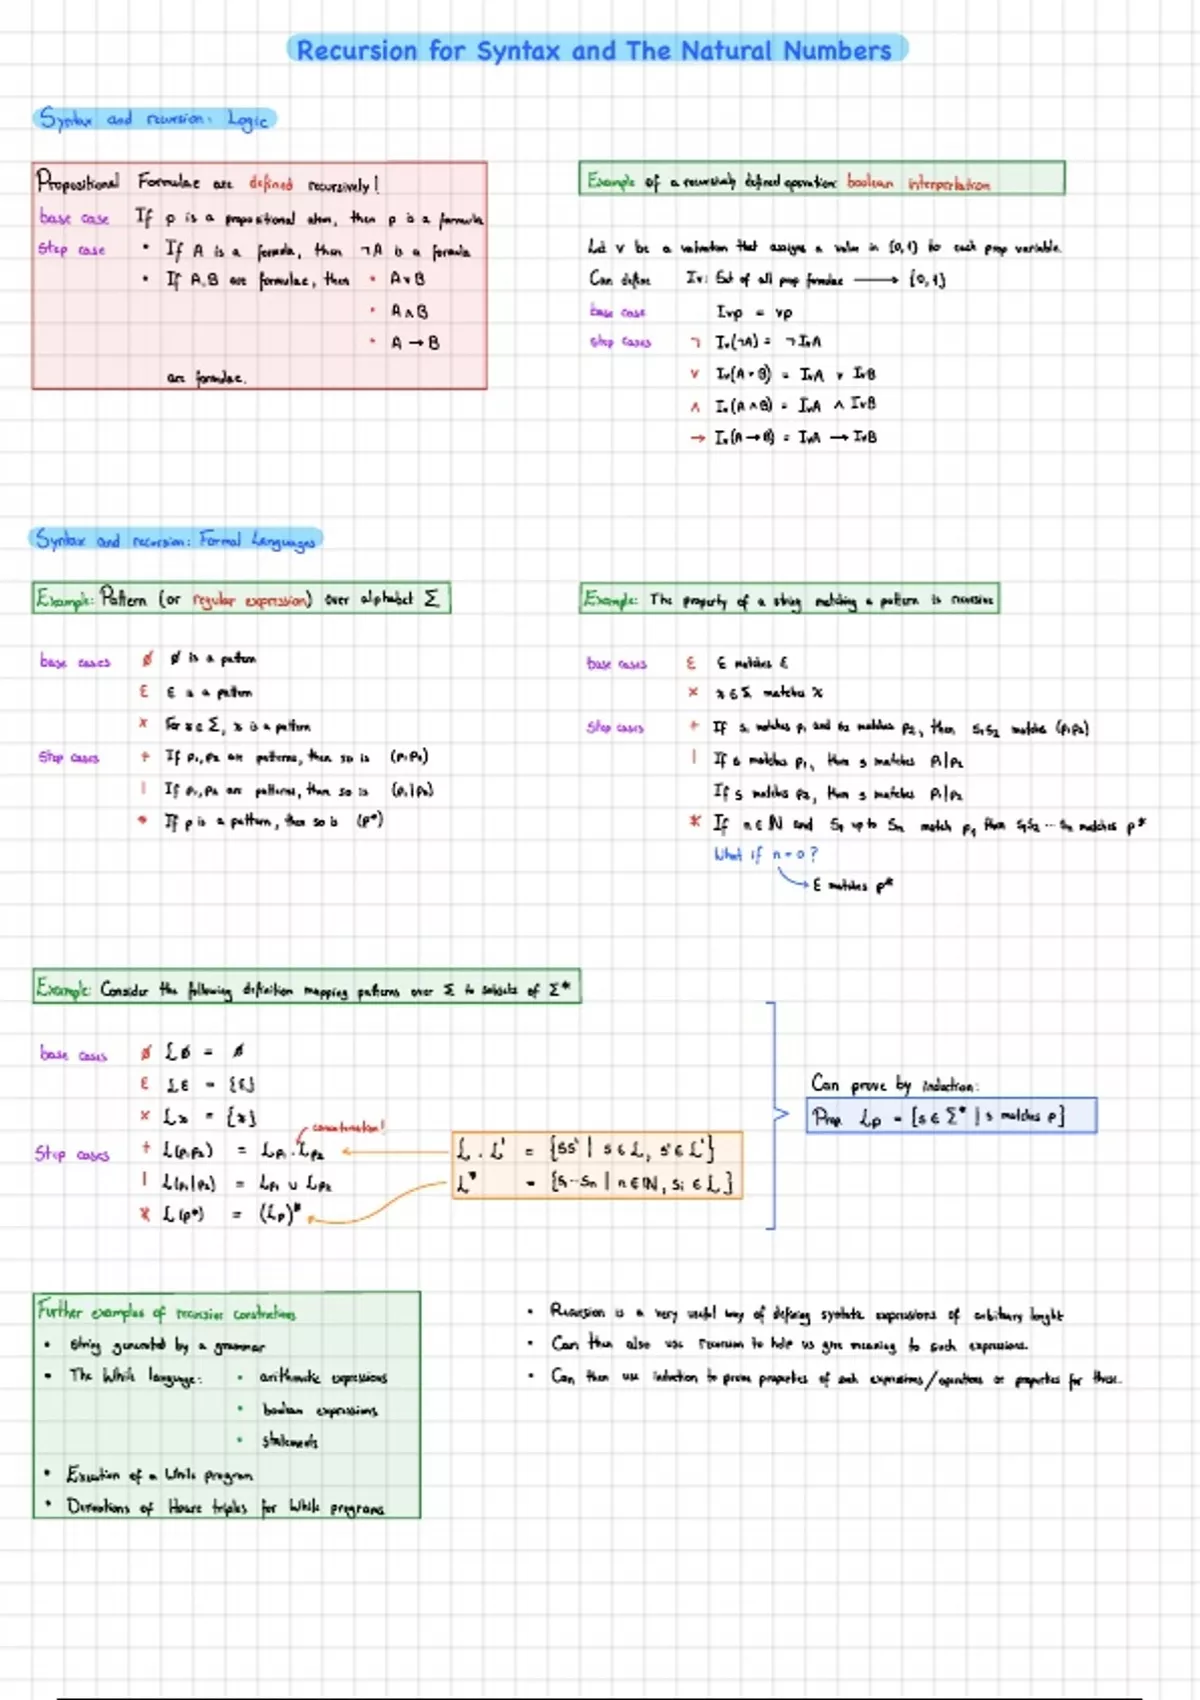 Recursion for Syntax and The Natural Numbers
Syntax and recursion: Logic
Propositional Formulae are defined recursively!
base case If p is a propositional atom, then p is a formula
step case • If A is a formula, then ¬A is a formula
• If A,B are formulae, then • A∨B
• A∧B
• A → B
are formulae.
Example of a recursively defined operation: boolean interpretation
Let v be a valuation that assigns a value in {0,1} to each prop variable.
Can define Iv: Set of all prop formulae ⟶ {0,1}
base case Ivp = vp
step cases ¬ Iv(¬A) = ¬IvA
∨ Iv(A∨B) = IvA ∨ IvB
∧ Iv(A∧B) = IvA ∧ IvB
→ Iv(A→B) = IvA → IvB
Syntax and recursion: Formal Languages
Example: Pattern (or regular expression) over alphabet Σ
base cases ∅ ∅ is a pattern
ε ε is a pattern
x For x∈Σ, x is a pattern
Step cases + If p₁,p₂ are patterns, then so is (p₁p₂)
| If p₁,p₂ are patterns, then so is (p₁|p₂)
* If p is a pattern, then so is (p*)
Example: The property of a string matching a pattern is recursive
base cases ε ε matches ε
x x∈Σ matches x
Step cases + If s₁ matches p₁ and s₂ matches p₂, then s₁s₂ matches (p₁p₂)
| If s matches p₁, then s matches p₁|p₂
If s matches p₂, then s matches p₁|p₂
* If n∈ℕ and s₁ up to sn match p, then s₁s₂···sn matches p*
What if n=0?
ε matches p*
Example: Consider the following definition mapping patterns over Σ to subsets of Σ*
base cases ∅ L∅ = ∅
ε Lε = {ε}
x Lx = {x}
concatenation!
Step cases + L(p₁p₂) = Lp₁ . Lp₂
| L(p₁|p₂) = Lp₁ ∪ Lp₂
* L(p*) = (Lp)*
L . L' = {ss' | s∈L, s'∈L'}
L* = {s₁···sn | n∈ℕ, si ∈ L}
Can prove by induction:
Prop. Lp = {s∈Σ* | s matches p}
Further examples of recursive constructions
• String generated by a grammar
• The While language: • arithmetic expressions
• boolean expressions
• statements
• Execution of a While program
• Derivations of Hoare triples for While programs
• Recursion is a very useful way of defining syntatic expressions of arbitrary lenght
• Can then also use recursion to help us give meaning to such expressions.
• Can then use induction to prove properties of such expressions/operations or properties for these.